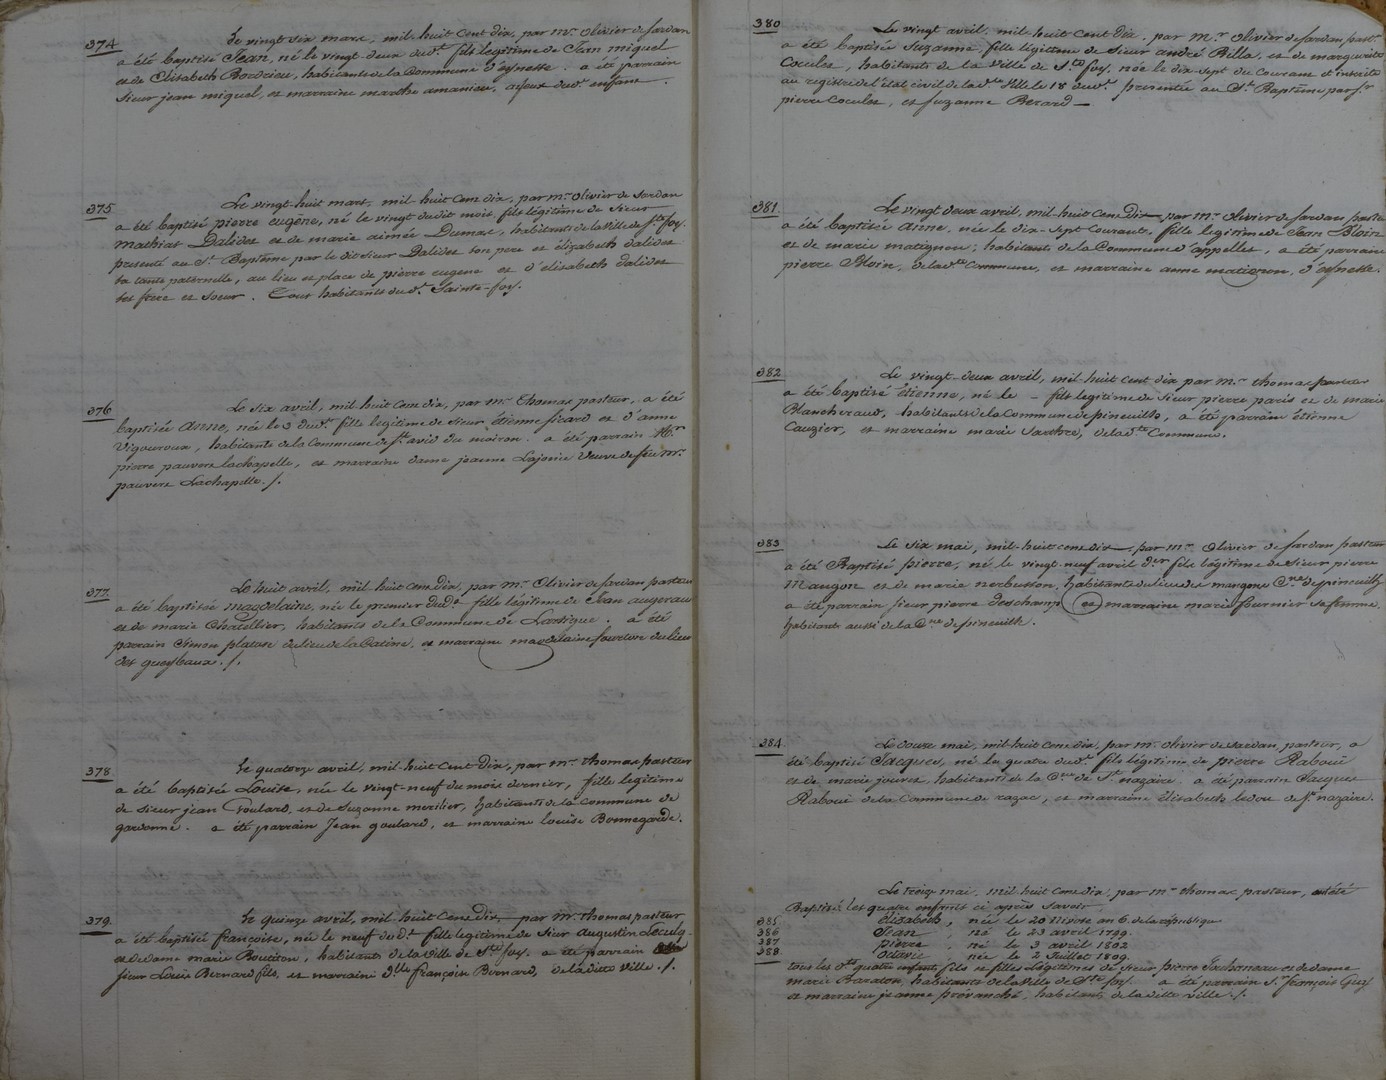 374
Le vingt six mars, mil-huit cent dix, par mr. Olivier de Sardan
a été baptisé Jean, né le vingt deux dudt. fils legitime de Jean miquel
et de Elisabeth Bordieu, habitants de la Commune d'eynesse. a été parrain
Sieur jean miquel, et marraine marthe amanieu, ayeux dudt. enfant.
375
Le vingt-huit mars, mil-huit cent dix, par mr. Olivier de Sardan
a été baptisé pierre eugène, né le vingt dudit mois, fils légitime de Sieur
mathias Dalidet et de marie aimée Dumas, habitants de la ville de Ste. foy.
presenté au St. Baptême par le dit Sieur Dalidet son pere et élizabeth dalidet
sa tante paternelle, au lieu et place de pierre eugene et d'élisabeth dalidet
ses frere et soeur. Tous habitants dudt. Sainte-foy.
376
Le six avril, mil-huit cent dix, par mr. Thomas pasteur, a été
baptisée anne, née le 3 dudt. fille legitime de Sieur étienne sicard et d'anne
Vigouroux, habitants de la Commune de St. avid du moiron. a été parrain Mr.
pierre pauvert lachapelle, et marraine dame jeanne Lajonie Veuve de feu mr.
pauvert Lachapelle ./.
377
Le huit avril, mil huit cent dix, par mr. Olivier de Sardan pasteur
a été baptisée magdelaine, née le premier dudt. fille légitime de Jean augereau
et de marie Chatellier, habitants de la Commune de Lartigue. a été
parrain Simon du lieu de la Catine, et marraine magdelaine du lieu
des queybaux ./.
378
Le quatorze avril, mil-huit cent dix, par mr. thomas pasteur
a été baptisée Louise, née le vingt-neuf du mois dernier, fille legitime
de Sieur jean Goulard, et de Suzanne merilier, habitants de la commune de
gardonne. a été parrain Jean goulard, et marraine louise Bonnegarde.
379
Le quinze avril, mil huit cent dix, par mr. thomas pasteur
a été baptisée françoise, née le neuf dudt. fille legitime de Sieur augustin
et de dame marie Boutiton, habitants de la ville de Ste. foy. a été parrain
Sieur Louis Bernard fils, et marraine dlle. françoise Bernard, de la ditte ville ./.
380
Le vingt avril, mil-huit cent dix, par mr. Olivier de Sardan past.
a été baptisée Suzanne, fille légitime de Sieur andré Billa, et de marguerite
Coculet, habitants de la ville de Ste foy, née le dix-sept du courant et inscrite
au registre de l'état civil de la dte. Ville le 18 dudt. presentée au St. Baptême par Sr.
pierre Coculet, et suzanne Berard
381
Le vingt deux avril, mil-huit cent dix, par mr. Olivier de Sardan pasteur
a été baptisée anne, née le dix-sept Courant, fille legitime de Jean Bloin
et de marie matignon, habitants de la Commune d'appelles, a été parrain
pierre Bloin, de la dte. Commune, et marraine anne matignon, d'eynesse.
382
Le vingt-deux avril, mil-huit cent dix par mr. thomas pasteur
a été baptisé étienne, né le - fils legitime de Sieur pierre paris et de marie
Blancheraud, habitants de la Commune de pineuilh, a été parrain étienne
Cauzier, et marraine marie, de la dte. Commune.
383
Le six mai, mil-huit cent dix, par mr. Olivier de Sardan pasteur
a été Baptisé pierre, né le vingt-neuf avril der. fils légitime de Sieur pierre
Maugon et de marie nerbusson, habitants du lieu de Cne. de pineuilh
a été parrain Sieur pierre deschamp et marraine marie fournier sa femme,
habitants aussi de la Cne. de pineuilh.
384
Le douze mai, mil-huit cent dix, par mr. Olivier de Sardan, pasteur, a
été baptisé Jacques, né le quatre dudt. fils légitime de pierre Raboué
et de marie, habitants de la Cne. de St. nazaire. a été parrain Jacques
Raboué de la Commune de razac, et marraine Elisabeth ledou de St. nazaire.
Le treize mai, mil-huit cent dix, par mr thomas pasteur, a été
Baptisé les quatre enfants ci après Savoir
385, élizabeth, née le 20 Nivôse an 6. de la république
386 Jean, né le 23 avril 1799.
387 pierre, né le 3 avril 1802
388. octavie, née le 2 Juillet 1809.
tous les dts quatre enfants, fils et filles légitimes de Sieur pierre et de dame
marie, habitants de la Ville de Ste foy. a été parrain Sr. françois Guy
et marraine jeanne prévanché, habitants de la ditte ville ./.